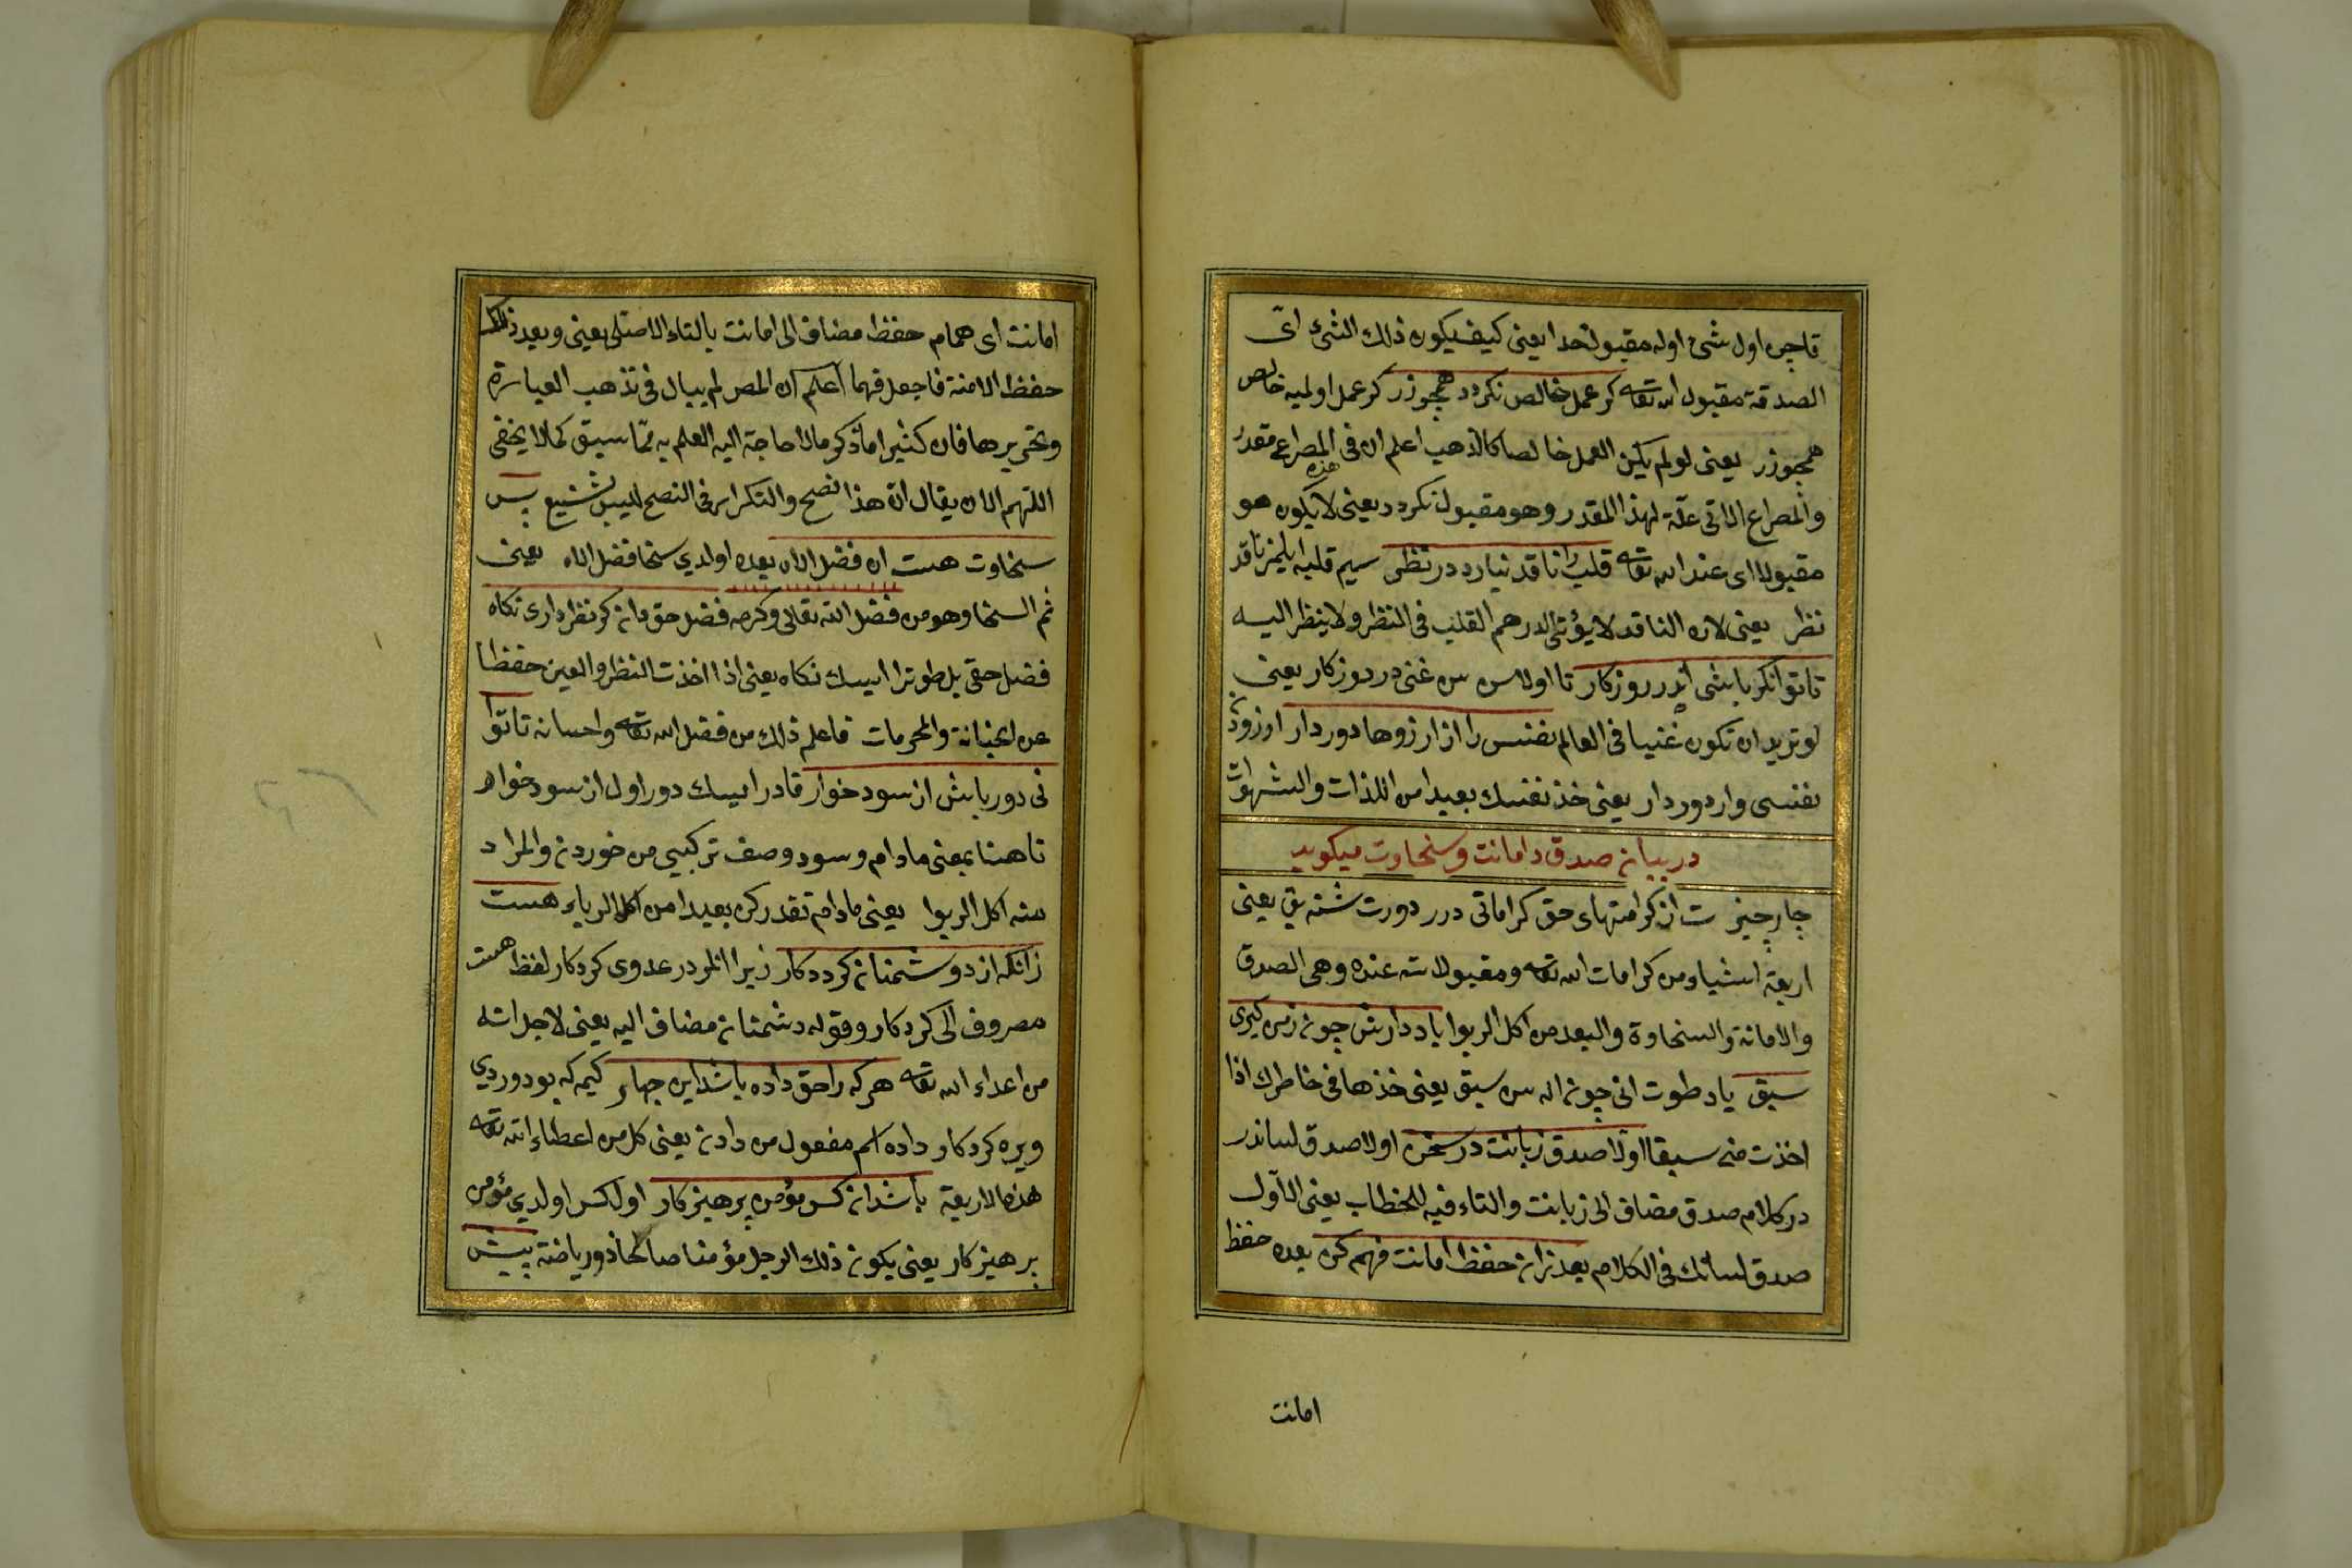 قاچن اول شئ اوله مقبول خدا يعنى كيف يكون ذلك الشئ اى
الصدقة مقبول الله تعالى كر عمل خالص نكردد همچو زر كر عمل اولميه خالص
همچو زر يعنى لو لم يكن العمل خالصا كالذهب اعلم ان فى هذه المصراع مقدر
والمصراع الاتى علة لهذا المقدر وهو مقبول نكردد يعنى لا يكون هو
مقبولا اى عند الله تعالى قلب را ناقد نيارد در نظر سيم قلبه ايلمز ناقد
نظر يعنى لان الناقد لا يؤتى الدرهم القلب فى النظر ولا ينظر اليه
تا توانكر باشى اندر روزكار تا اولاسن سن غنى در روزكار يعنى
لو تريد ان تكون غنيا فى العالم نفس را از ارزوها دور دار ارزودن
نفسى وار دور دار يعنى خذ نفسك بعيدا من اللذات والشهوات
در بيان صدق و امانت و سخاوت ميكويد
چار چيز ست از كرامتهاى حق كراماتى درر دورت شئ يق يعنى
اربعة اشياء من كرامات الله تعالى ومقبولاته عنده وهى الصدق
والامانة والسخاوة والبعد من اكل الربوا ياد دارش چون ز من كيرى
سبق ياد طوت انى چون اله سن سبق يعنى خذها فى خاطرك اذا
اخذت منى سبقا اولا صدق زبانت در سخن اولا صدق لساندر
در كلام صدق مضاف الى زبانت والتاء فيه للخطاب يعنى الاول
صدق لسانك فى الكلام بعد زان حفظ امانت فهم كن بعده حفظ
امانت
امانت اى همام حفظ مضاف الى امانت بالتاء الاصلى يعنى وبعد ذلك
حفظ الامنة فاجعل فهما اعلم ان المص لم يبال فى تذهب العبارة
وتحريرها فان كثيرا ما ذكر ما لا حاجة اليه العلم به مما سبق كما لا يخفى
اللهم الا ان يقال ان هذا نصح والتكرار فى النصح ليس بشنيع پس
سخاوت هست ان فضل اله بعده اولدى سخا فضل اله يعنى
ثم السخا وهو من فضل الله تعالى وكرمه فضل حق دان كر نظر دارى نكاه
فضل حقى بل طوترا ايسك نكاه يعنى اذا اخذت النظر والعين حفظا
عن الخيانة والمحرمات فاعلم ذلك من فضل الله تعالى واحسانه تا توا
نى دور باش از سود خوار قادر ايسك دور اول از سود خوار
تا هنا بمعنى مادام وسود وصف تركيبى من خوردن والمراد
منه اكل الربوا يعنى مادام تقدر كن بعيدا من اكل الربا بر هست
زانكه از دوشمنان كردكار زيرا انلر در عدوى كردكار لفظ هست
مصروف الى كردكار وقوله دشمنان مضاف اليه يعنى لاجل انه
من اعداء الله تعالى هر كه را حق داده باشد اين چهار كيمه كه بو دوردى
ويره كردكار داده اسم مفعول من دادن يعنى كل من اعطاء الله تعالى
هذه الاربعة باشد ان كس مؤمن پرهيزكار اول كس اولدى مؤمن
پرهيزكار يعنى يكون ذلك الرجل مؤمنا صالحا ذو رياضة پيش